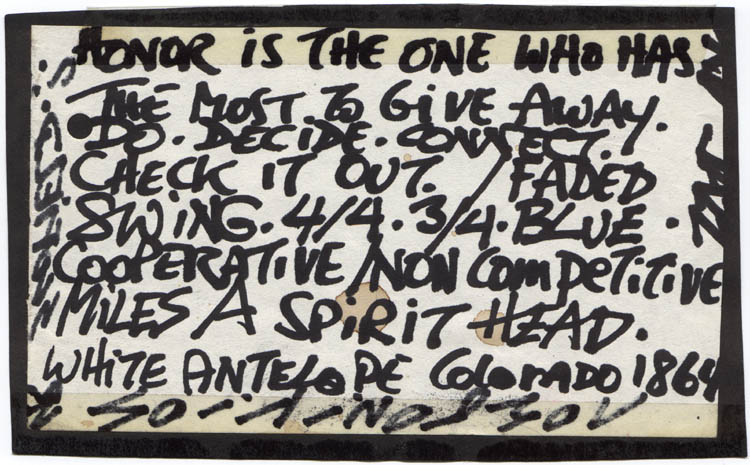 HONOR iS THE ONE WHO HAS
THE MOST TO GiVE AWAY.
DO. DECiDE. CONNECT.
CHECK iT OUT. / FADED
SWiNG. 4/4. 3/4. BLUE.
COOPERATiVE / NON COMpETiTiVE
MiLES A SPiRiT HEAD.
WHiTE ANTELOPE COLORADO 1864